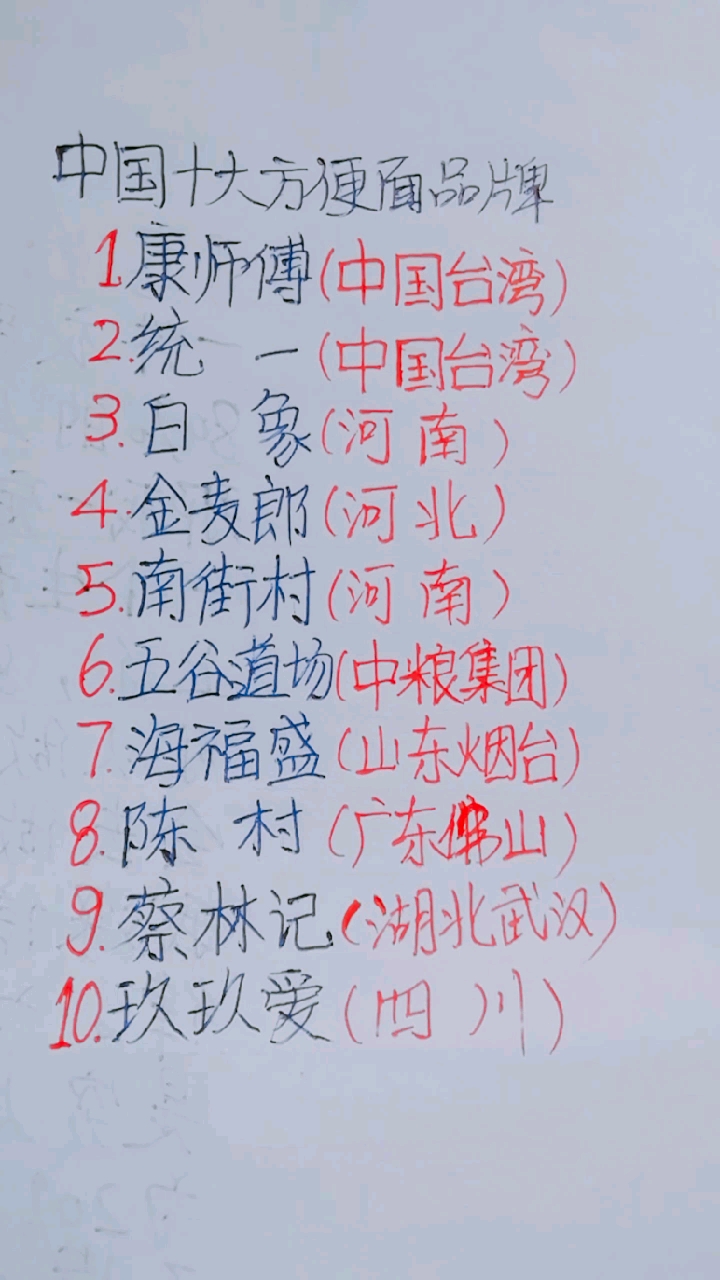 中国十大方便面品牌
1.康师傅(中国台湾)
2.统一(中国台湾)
3.白象(河南)
4.金麦郎(河北)
5.南街村(河南)
6.五谷道场(中粮集团)
7.海福盛(山东烟台)
8.陈村(广东佛山)
9.蔡林记(湖北武汉)
10.玖玖爱(四川)